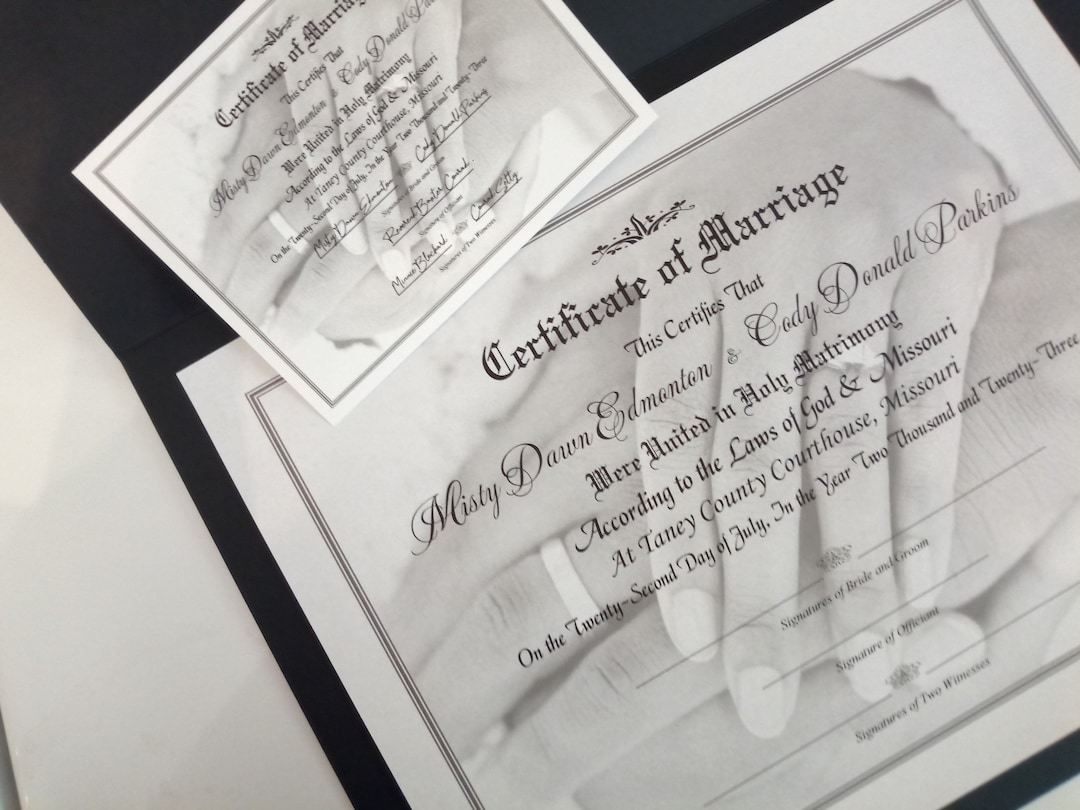 Certificate of Marriage
This Certifies That
Misty Dawn Edmonton & Cody Donald
Were United in Holy Matrimony
According to the Laws of God & Missouri
At Taney County Courthouse, Missouri
On the Twenty-Second Day of July, In the Year Two Thousand and Twenty-Three
Misty Dawn Edmonton Cody Donald Parkins
Signatures of Bride and Groom
Reverend Baxter Conrad
Signature of Officiant
Minnie Blochard Conrad Colty
Signatures of Two Witnesses
Certificate of Marriage
This Certifies That
Misty Dawn Edmonton & Cody Donald Parkins
Were United in Holy Matrimony
According to the Laws of God & Missouri
At Taney County Courthouse, Missouri
On the Twenty-Second Day of July, In the Year Two Thousand and Twenty-Three
Signatures of Bride and Groom
Signature of Officiant
Signatures of Two Witnesses